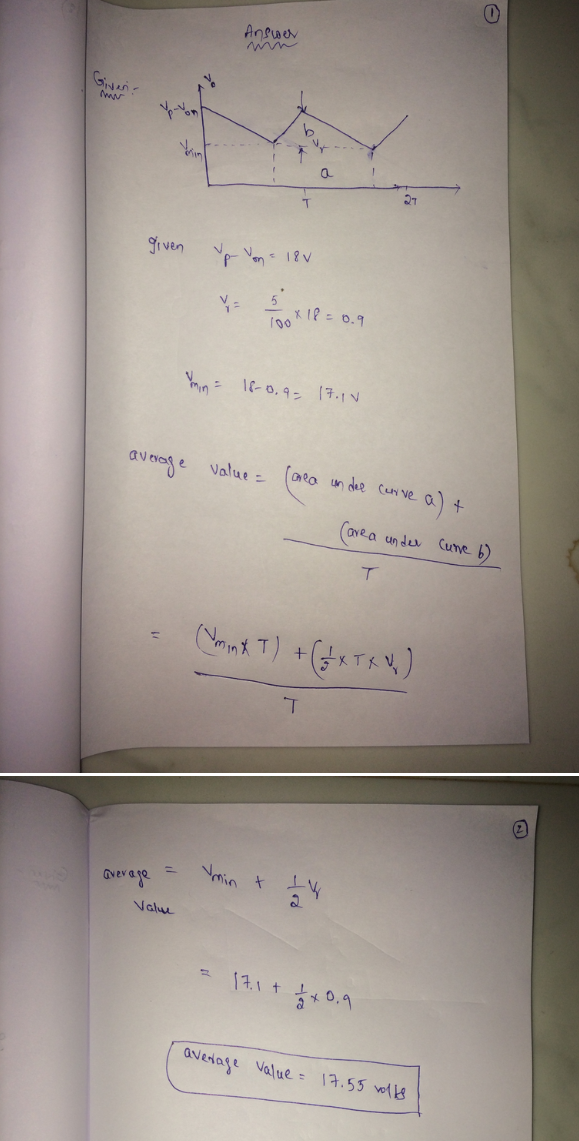 ①
Answer
Given:-
V₀
Vp-Von
Vmin
b
Vr
a
T
2T
given Vp-Von = 18V
Vr = 5/100 × 18 = 0.9
Vmin = 18-0.9 = 17.1V
average value = (area under curve a) +
(area under curve b)
T
= (Vmin × T) + (1/2 × T × Vr)
T
②
average = Vmin + 1/2 Vr
Value
= 17.1 + 1/2 × 0.9
average value = 17.55 volts